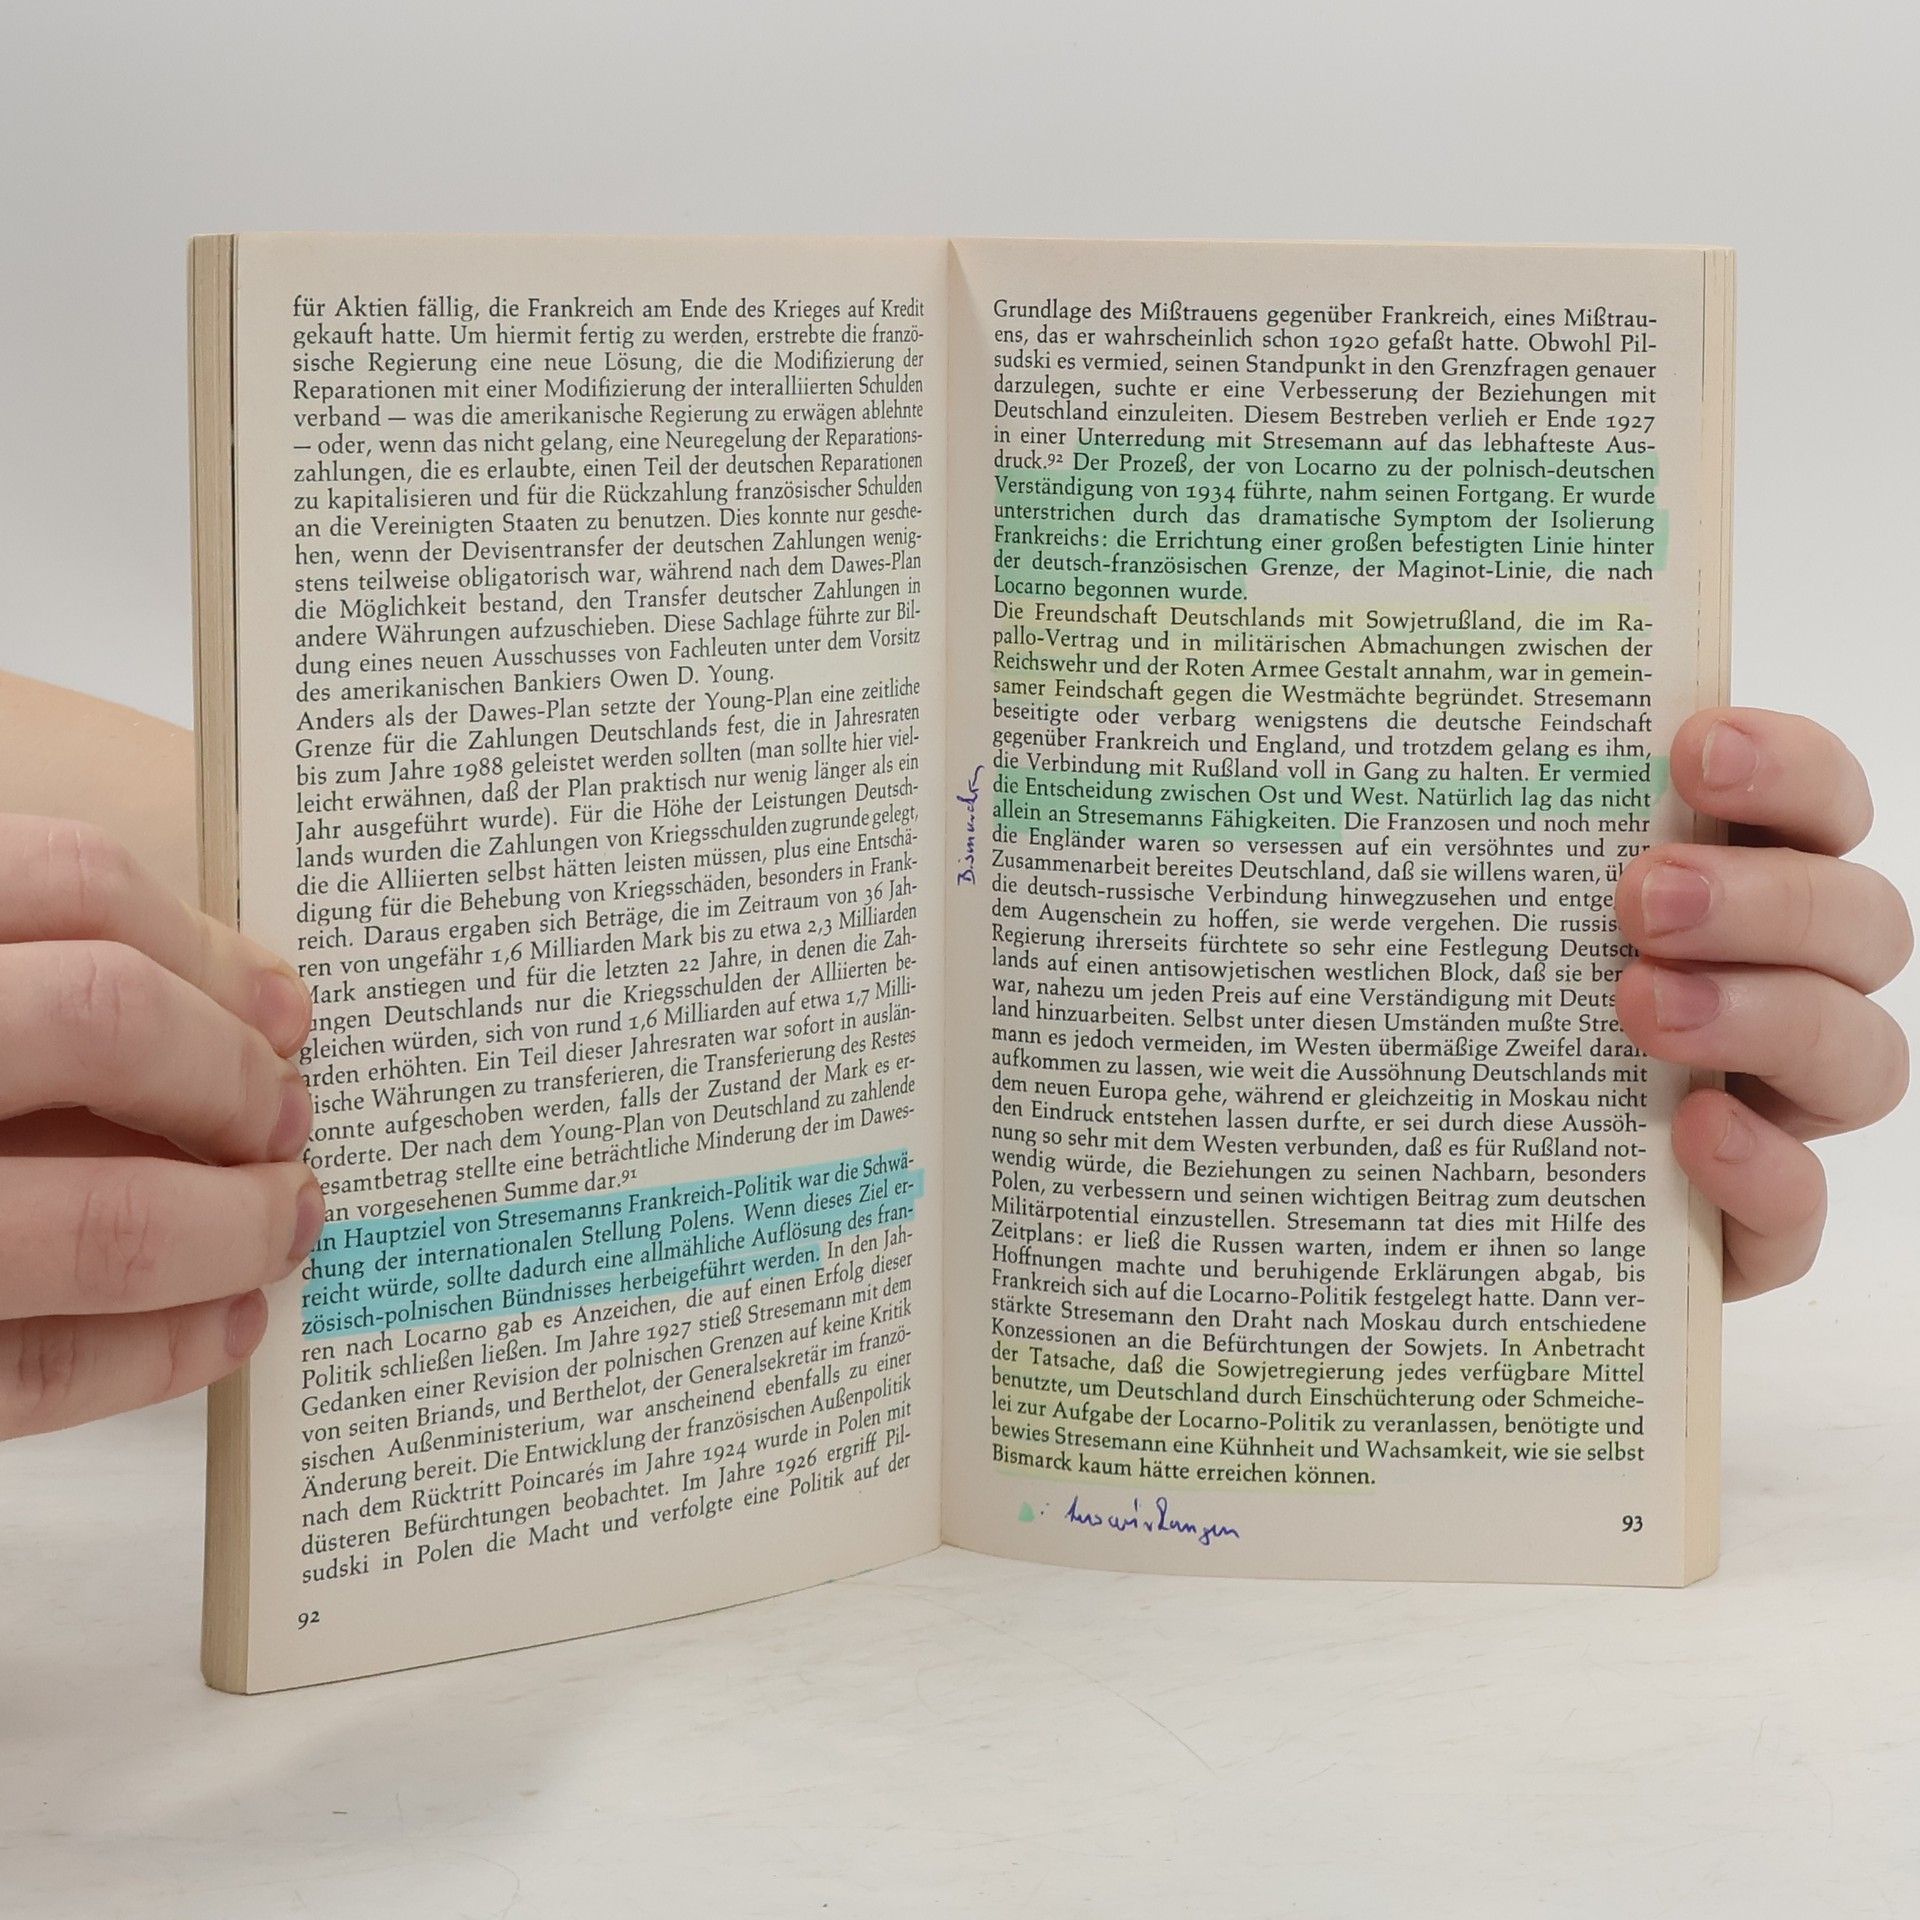 für Aktien fällig, die Frankreich am Ende des Krieges auf Kredit
gekauft hatte. Um hiermit fertig zu werden, erstrebte die franzö-
sische Regierung eine neue Lösung, die die Modifizierung der
Reparationen mit einer Modifizierung der interalliierten Schulden
verband — was die amerikanische Regierung zu erwägen ablehnte
— oder, wenn das nicht gelang, eine Neuregelung der Reparations-
zahlungen, die es erlaubte, einen Teil der deutschen Reparationen
zu kapitalisieren und für die Rückzahlung französischer Schulden
an die Vereinigten Staaten zu benutzen. Dies konnte nur gesche-
hen, wenn der Devisentransfer der deutschen Zahlungen wenig-
stens teilweise obligatorisch war, während nach dem Dawes-Plan
die Möglichkeit bestand, den Transfer deutscher Zahlungen in
andere Währungen aufzuschieben. Diese Sachlage führte zur Bil-
dung eines neuen Ausschusses von Fachleuten unter dem Vorsitz
des amerikanischen Bankiers Owen D. Young.
Anders als der Dawes-Plan setzte der Young-Plan eine zeitliche
Grenze für die Zahlungen Deutschlands fest, die in Jahresraten
bis zum Jahre 1988 geleistet werden sollten (man sollte hier viel-
leicht erwähnen, daß der Plan praktisch nur wenig länger als ein
Jahr ausgeführt wurde). Für die Höhe der Leistungen Deutsch-
lands wurden die Zahlungen von Kriegsschulden zugrunde gelegt,
die die Alliierten selbst hätten leisten müssen, plus eine Entschä-
digung für die Behebung von Kriegsschäden, besonders in Frank-
reich. Daraus ergaben sich Beträge, die im Zeitraum von 36 Jah-
ren von ungefähr 1,6 Milliarden Mark bis zu etwa 2,3 Milliarden
Mark anstiegen und für die letzten 22 Jahre, in denen die Zah-
ungen Deutschlands nur die Kriegsschulden der Alliierten be-
gleichen würden, sich von rund 1,6 Milliarden auf etwa 1,7 Milli-
arden erhöhten. Ein Teil dieser Jahresraten war sofort in auslän-
lische Währungen zu transferieren, die Transferierung des Restes
konnte aufgeschoben werden, falls der Zustand der Mark es er-
forderte. Der nach dem Young-Plan von Deutschland zu zahlende
esamtbetrag stellte eine beträchtliche Minderung der im Dawes-
an vorgesehenen Summe dar.91
in Hauptziel von Stresemanns Frankreich-Politik war die Schwä-
chung der internationalen Stellung Polens. Wenn dieses Ziel er-
reicht würde, sollte dadurch eine allmähliche Auflösung des fran-
zösisch-polnischen Bündnisses herbeigeführt werden. In den Jah-
ren nach Locarno gab es Anzeichen, die auf einen Erfolg dieser
Politik schließen ließen. Im Jahre 1927 stieß Stresemann mit dem
Gedanken einer Revision der polnischen Grenzen auf keine Kritik
von seiten Briands, und Berthelot, der Generalsekretär im franzö-
sischen Außenministerium, war anscheinend ebenfalls zu einer
Änderung bereit. Die Entwicklung der französischen Außenpolitik
nach dem Rücktritt Poincarés im Jahre 1924 wurde in Polen mit
düsteren Befürchtungen beobachtet. Im Jahre 1926 ergriff Pil-
sudski in Polen die Macht und verfolgte eine Politik auf der
92
Grundlage des Mißtrauens gegenüber Frankreich, eines Mißtrau-
ens, das er wahrscheinlich schon 1920 gefaßt hatte. Obwohl Pil-
sudski es vermied, seinen Standpunkt in den Grenzfragen genauer
darzulegen, suchte er eine Verbesserung der Beziehungen mit
Deutschland einzuleiten. Diesem Bestreben verlieh er Ende 1927
in einer Unterredung mit Stresemann auf das lebhafteste Aus-
druck.92 Der Prozeß, der von Locarno zu der polnisch-deutschen
Verständigung von 1934 führte, nahm seinen Fortgang. Er wurde
unterstrichen durch das dramatische Symptom der Isolierung
Frankreichs: die Errichtung einer großen befestigten Linie hinter
der deutsch-französischen Grenze, der Maginot-Linie, die nach
Locarno begonnen wurde.
Die Freundschaft Deutschlands mit Sowjetrußland, die im Ra-
pallo-Vertrag und in militärischen Abmachungen zwischen der
Reichswehr und der Roten Armee Gestalt annahm, war in gemein-
samer Feindschaft gegen die Westmächte begründet. Stresemann
beseitigte oder verbarg wenigstens die deutsche Feindschaft
gegenüber Frankreich und England, und trotzdem gelang es ihm,
die Verbindung mit Rußland voll in Gang zu halten. Er vermied
die Entscheidung zwischen Ost und West. Natürlich lag das nicht
allein an Stresemanns Fähigkeiten. Die Franzosen und noch mehr
die Engländer waren so versessen auf ein versöhntes und zur
Zusammenarbeit bereites Deutschland, daß sie willens waren, ü
die deutsch-russische Verbindung hinwegzusehen und entge
dem Augenschein zu hoffen, sie werde vergehen. Die russis
Regierung ihrerseits fürchtete so sehr eine Festlegung Deutsch-
lands auf einen antisowjetischen westlichen Block, daß sie ber
war, nahezu um jeden Preis auf eine Verständigung mit Deuts
land hinzuarbeiten. Selbst unter diesen Umständen mußte Stre
mann es jedoch vermeiden, im Westen übermäßige Zweifel daran
aufkommen zu lassen, wie weit die Aussöhnung Deutschlands mit
dem neuen Europa gehe, während er gleichzeitig in Moskau nicht
den Eindruck entstehen lassen durfte, er sei durch diese Aussöh-
nung so sehr mit dem Westen verbunden, daß es für Rußland not-
wendig würde, die Beziehungen zu seinen Nachbarn, besonders
Polen, zu verbessern und seinen wichtigen Beitrag zum deutschen
Militärpotential einzustellen. Stresemann tat dies mit Hilfe des
Zeitplans: er ließ die Russen warten, indem er ihnen so lange
Hoffnungen machte und beruhigende Erklärungen abgab, bis
Frankreich sich auf die Locarno-Politik festgelegt hatte. Dann ver-
stärkte Stresemann den Draht nach Moskau durch entschiedene
Konzessionen an die Befürchtungen der Sowjets. In Anbetracht
der Tatsache, daß die Sowjetregierung jedes verfügbare Mittel
benutzte, um Deutschland durch Einschüchterung oder Schmeiche-
lei zur Aufgabe der Locarno-Politik zu veranlassen, benötigte und
bewies Stresemann eine Kühnheit und Wachsamkeit, wie sie selbst
Bismarck kaum hätte erreichen können.
: Auswirkungen
93